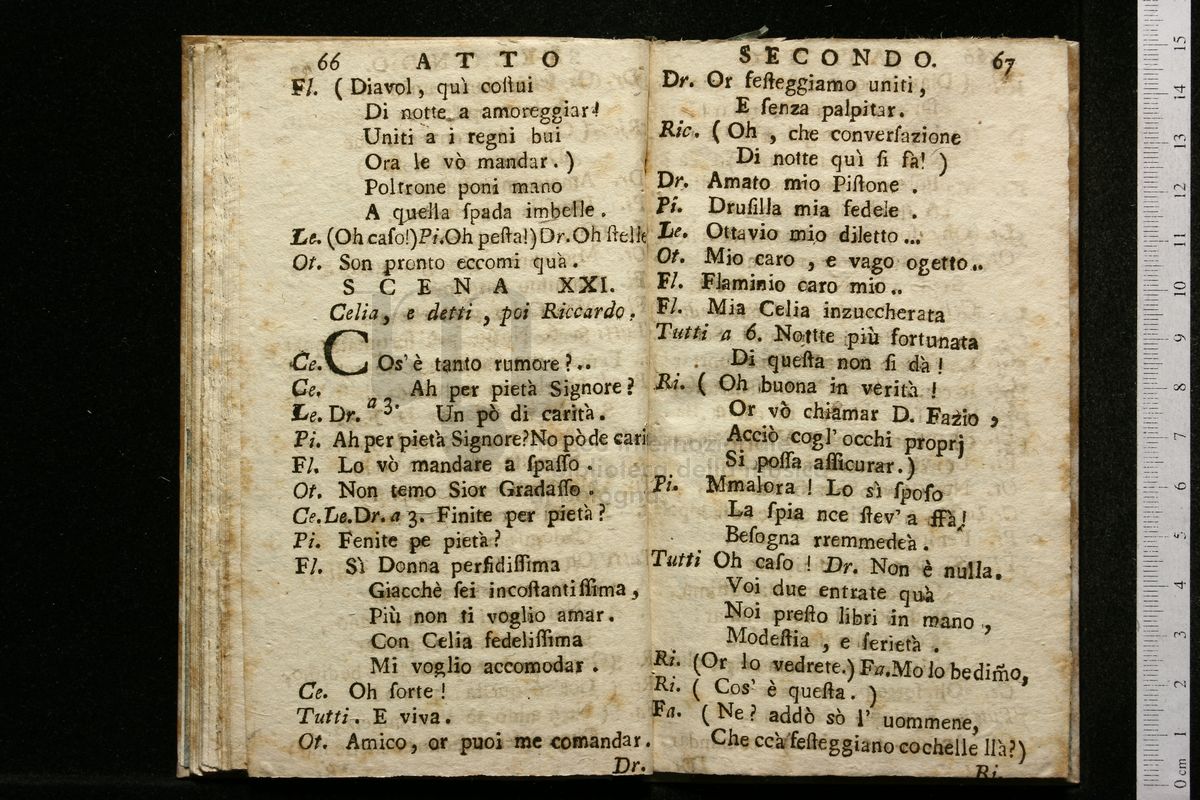 66 ATTO
Fl. ( Diavol, quì coſtui
Di notte a amoreggiar!
Uniti a i regni bui
Ora le vò mandar. )
Poltrone poni mano
A quella ſpada imbelle.
Le. (Oh caſo!) Pi. Oh peſta!) Dr. Oh ſtelle
Ot. Son pronto eccomi quà.
SCENA XXI.
Celia, e detti, poi Riccardo.
Ce. COs'è tanto rumore?..
Ce. Ah per pietà Signore?
Le. Dr. a 3. Un pò di carità.
Pi. Ah per pietà Signore? No pò de cari
Fl. Lo vò mandare a ſpaſſo.
Ot. Non temo Sior Gradaſſo.
Ce. Le. Dr. a 3. Finite per pietà?
Pi. Fenite pe pietà?
Fl. Sì Donna perfidiſſima
Giacchè ſei incoſtantiſſima,
Più non ti voglio amar.
Con Celia fedeliſſima
Mi voglio accomodar.
Ce. Oh ſorte!
Tutti. E viva.
Ot. Amico, or puoi me comandar.
Dr.
SECONDO. 67
Dr. Or feſteggiamo uniti,
E ſenza palpitar.
Ric. ( Oh, che converſazione
Di notte quì ſi fà! )
Dr. Amato mio Piſtone.
Pi. Druſilla mia fedele.
Le. Ottavio mio diletto...
Ot. Mio caro, e vago ogetto..
Fl. Flaminio caro mio..
Fl. Mia Celia inzuccherata
Tutti a 6. Nottte più fortunata
Di queſta non ſi dà!
Ri. ( Oh buona in verità!
Or vò chiamar D. Fazio,
Acciò cogl' occhi proprj
Si poſſa aſſicurar.)
Pi. Mmalora! Lo sì ſpoſo
La ſpia nce ſtev' a ffà!
Beſogna rremmedeà.
Tutti Oh caſo! Dr. Non è nulla.
Voi due entrate quà
Noi preſto libri in mano,
Modeſtia, e ſerietà.
Ri. (Or lo vedrete.) Fa. Mo lo bedim̃o,
Ri. ( Cos' è queſta. )
Fa. ( Ne? addò sò l' uommene,
Che ccà feſteggiano cochelle llà?)
Ri.